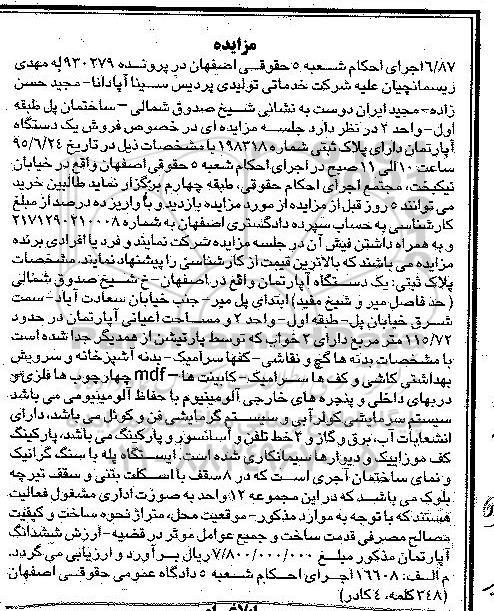 مزایده
۶/۸۷ اجرای احکام شعبه ۵ حقوقی اصفهان در پرونده ۹۳۰۲۷۹ له مهدی
ریسمانچیان علیه شرکت خدماتی تولیدی پردیس سینا آپادانا - مجید حسن
زاده - مجید ایران دوست به نشانی شیخ صدوق شمالی - ساختمان پل طبقه
اول - واحد ۲ در نظر دارد جلسه مزایده ای در خصوص فروش یک دستگاه
آپارتمان دارای پلاک ثبتی شماره ۱۹۸۳۱۸ با مشخصات ذیل در تاریخ ۹۵/۶/۲۴
ساعت ۱۰ الی ۱۱ صبح در اجرای احکام شعبه ۵ حقوقی اصفهان واقع در خیابان
نیکبخت، مجتمع اجرای احکام حقوقی، طبقه چهارم برگزار نماید طالبین خرید
می توانند ۵ روز قبل از مزایده از مورد مزایده بازدید و با واریز ده درصد از مبلغ
کارشناسی به حساب سپرده دادگستری اصفهان به شماره ۲۱۷۱۲۹۰۲۱۰۰۰۸
و به همراه داشتن فیش آن در جلسه مزایده شرکت نمایند و فرد یا افرادی برنده
مزایده می باشند که بالاترین قیمت از کارشناسی را پیشنهاد نمایند. مشخصات
پلاک ثبتی: یک دستگاه آپارتمان واقع در اصفهان - خ شیخ صدوق شمالی
( حد فاصل میر و شیخ مفید) ابتدای پل میر - جنب خیابان سعادت آباد - سمت
شرق خیابان پل - طبقه اول - واحد ۲ و مساحت اعیانی آپارتمان در حدود
۱۱۵/۷۲ متر مربع دارای ۳ خواب که توسط پارتیشن از همدیگر جدا شده است
با مشخصات بدنه ها گچ و نقاشی - کفها سرامیک - بدنه آشپزخانه و سرویش
بهداشتی کاشی و کف ها سرامیک - کابینت ها - mdf چهارچوب ها فلزی و
دربهای داخلی و پنجره های خارجی آلومینیوم با حفاظ آلومینیومی می باشد
سیستم سرمایشی کولر آبی و سیستم گرمایشی فن و کوئل می باشد، دارای
انشعابات آب، برق و گاز و ۲ خط تلفن و آسانسور و پارکینگ می باشد، پارکینگ
کف موزاییک و دیوارها سیمانکاری شده است. ایستگاه پله با سنگ گرانیک
و نمای ساختمان آجری است که در ۸ سقف با اسکلت بتنی و سقف تیرچه
بلوک می باشد که در این مجموعه ۱۲ واحد به صورت اداری مشغول فعالیت
هستند که با توجه به موارد مذکور - موقعیت محل، متراژ نحوه ساخت و کیفیت
مصالح مصرفی قدمت ساخت و جمیع عوامل موثر در قضیه - ارزش ششدانگ
آپارتمان مذکور مبلغ ۷/۸۰۰/۰۰۰/۰۰۰ ریال برآورد و ارزیابی می گردد.
م الف: ۱۶۶۰۸ اجرای احکام شعبه ۵ دادگاه عمومی حقوقی اصفهان
(۳۴۸ کلمه، ۴ کادر)